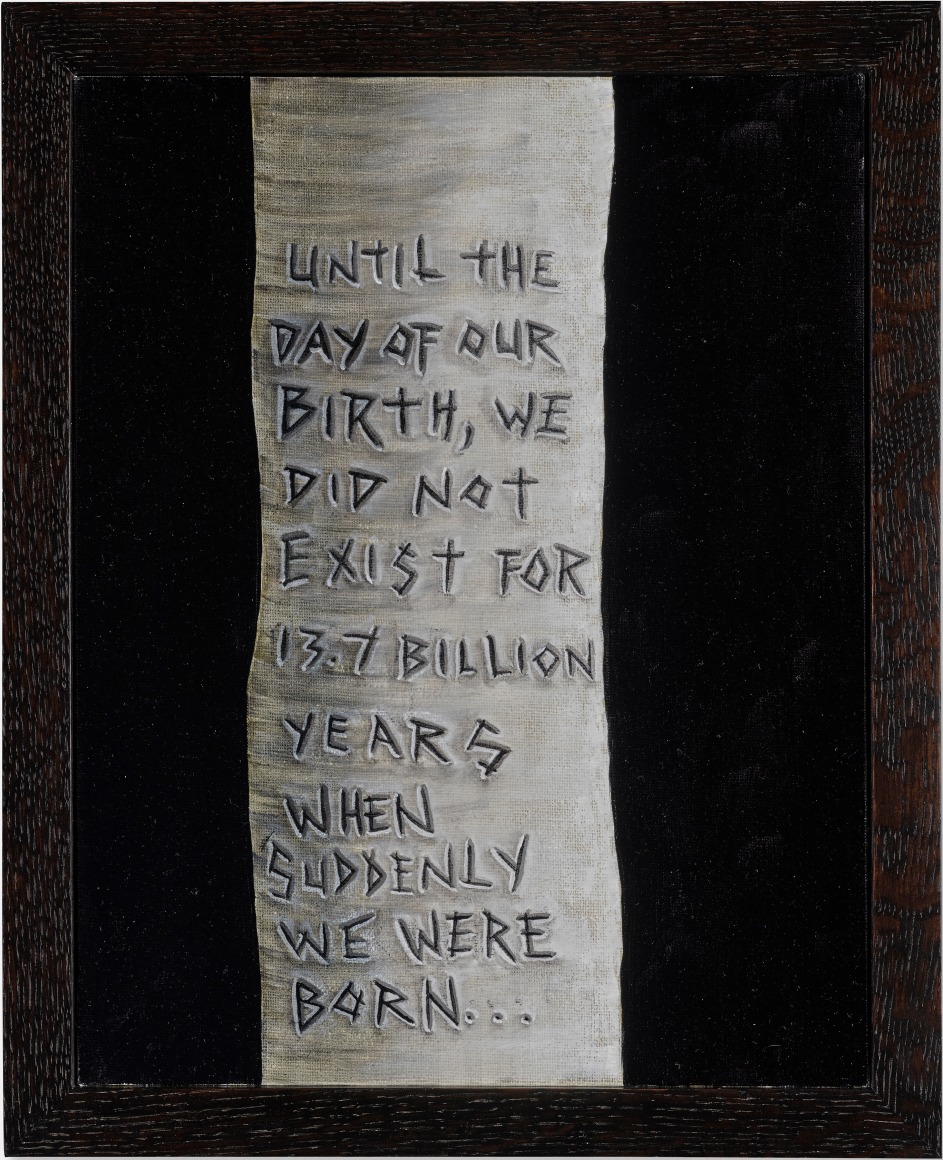 UNTIL THE
DAY OF OUR
BIRTH, WE
DID NOT
EXIST FOR
13.7 BILLION
YEARS
WHEN
SUDDENLY
WE WERE
BORN...